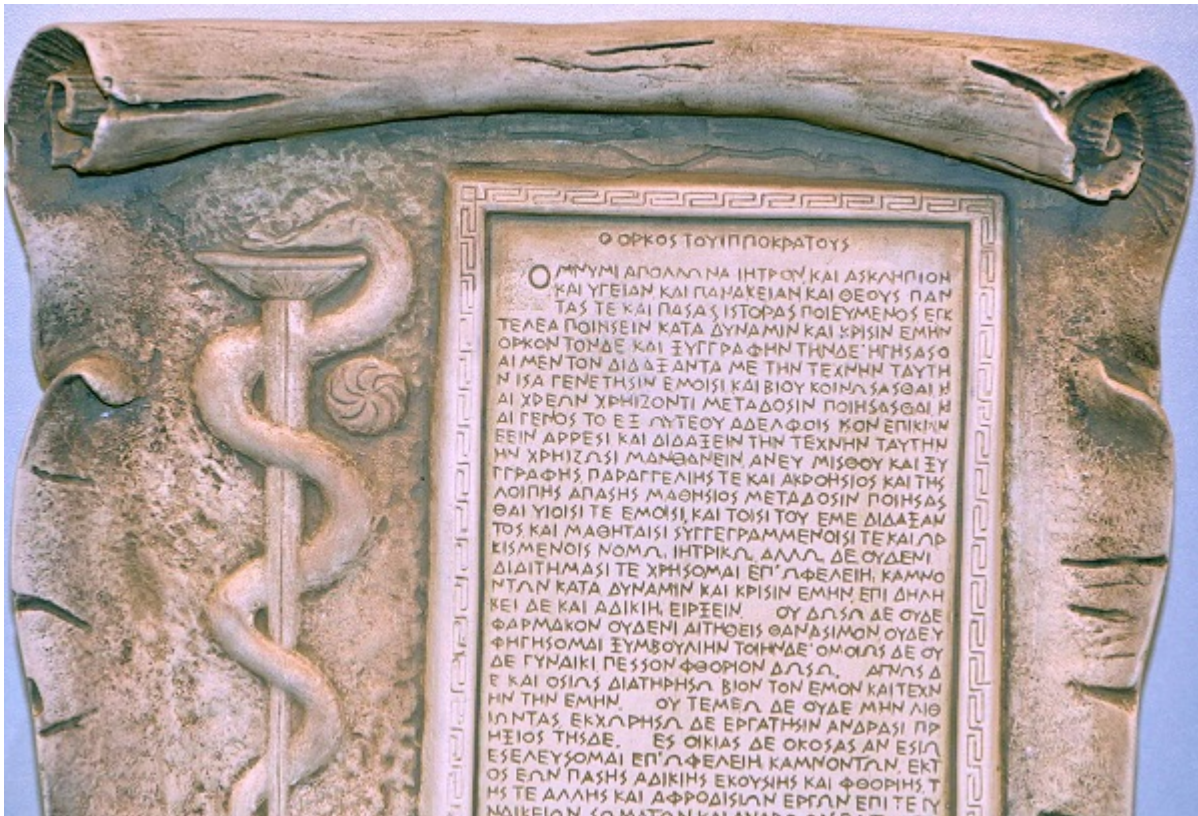 Ο ΟΡΚΟΣ ΤΟΥ ΙΠΠΟΚΡΑΤΟΥΣ
ΟΜΝΥΜΙ ΑΠΟΛΛΩΝΑ ΙΗΤΡΟΝ ΚΑΙ ΑΣΚΛΗΠΙΟΝ
ΚΑΙ ΥΓΕΙΑΝ ΚΑΙ ΠΑΝΑΚΕΙΑΝ ΚΑΙ ΘΕΟΥΣ ΠΑΝ
ΤΑΣ ΤΕ ΚΑΙ ΠΑΣΑΣ ΙΣΤΟΡΑΣ ΠΟΙΕΥΜΕΝΟΣ ΕΓΚ
ΤΕΛΕΑ ΠΟΙΗΣΕΙΝ ΚΑΤΑ ΔΥΝΑΜΙΝ ΚΑΙ ΚΡΙΣΙΝ ΕΜΗΝ
ΟΡΚΟΝ ΤΟΝΔΕ ΚΑΙ ΞΥΓΓΡΑΦΗΝ ΤΗΝΔΕ ΗΓΗΣΑΣΟ
ΑΙ ΜΕΝ ΤΟΝ ΔΙΔΑΞΑΝΤΑ ΜΕ ΤΗΝ ΤΕΧΝΗΝ ΤΑΥΤΗ
Ν ΙΣΑ ΓΕΝΕΤΗΣΙΝ ΕΜΟΙΣΙ ΚΑΙ ΒΙΟΥ ΚΟΙΝΩΣΑΣΘΑΙ Κ
ΑΙ ΧΡΕΩΝ ΧΡΗΙΖΟΝΤΙ ΜΕΤΑΔΟΣΙΝ ΠΟΙΗΣΑΣΘΑΙ Κ
ΑΙ ΓΕΝΟΣ ΤΟ ΕΞ ΩΥΤΕΟΥ ΑΔΕΛΦΟΙΣ ΙΣΟΝ ΕΠΙΚΙΝ
ΕΕΙΝ ΑΡΡΕΣΙ ΚΑΙ ΔΙΔΑΞΕΙΝ ΤΗΝ ΤΕΧΝΗΝ ΤΑΥΤΗΝ
ΗΝ ΧΡΗΙΖΩΣΙ ΜΑΝΘΑΝΕΙΝ ΑΝΕΥ ΜΙΣΘΟΥ ΚΑΙ ΞΥ
ΓΓΡΑΦΗΣ, ΠΑΡΑΓΓΕΛΙΗΣ ΤΕ ΚΑΙ ΑΚΡΟΗΣΙΟΣ ΚΑΙ ΤΗΣ
ΛΟΙΠΗΣ ΑΠΑΣΗΣ ΜΑΘΗΣΙΟΣ ΜΕΤΑΔΟΣΙΝ ΠΟΙΗΣΑΣ
ΘΑΙ ΥΙΟΙΣΙ ΤΕ ΕΜΟΙΣΙ, ΚΑΙ ΤΟΙΣΙ ΤΟΥ ΕΜΕ ΔΙΔΑΞΑΝ
ΤΟΣ ΚΑΙ ΜΑΘΗΤΑΙΣΙ ΣΥΓΓΕΓΡΑΜΜΕΝΟΙΣΙ ΤΕ ΚΑΙ ΩΡ
ΚΙΣΜΕΝΟΙΣ ΝΟΜΩ, ΙΗΤΡΙΚΩ, ΑΛΛΩ ΔΕ ΟΥΔΕΝΙ
ΔΙΑΙΤΗΜΑΣΙ ΤΕ ΧΡΗΣΟΜΑΙ ΕΠ' ΩΦΕΛΕΙΗ, ΚΑΜΝΟ
ΝΤΩΝ ΚΑΤΑ ΔΥΝΑΜΙΝ ΚΑΙ ΚΡΙΣΙΝ ΕΜΗΝ ΕΠΙ ΔΗΛΗ
ΚΕΙ ΔΕ ΚΑΙ ΑΔΙΚΙΗ, ΕΙΡΞΕΙΝ ΟΥ ΔΩΣΩ ΔΕ ΟΥΔΕ
ΦΑΡΜΑΚΟΝ ΟΥΔΕΝΙ ΑΙΤΗΘΕΙΣ ΘΑΝΑΣΙΜΟΝ, ΟΥΔΕ Υ
ΦΗΓΗΣΟΜΑΙ ΞΥΜΒΟΥΛΙΗΝ ΤΟΙΗΝΔΕ ΟΜΟΙΩΣ ΔΕ ΟΥ
ΔΕ ΓΥΝΑΙΚΙ ΠΕΣΣΟΝ ΦΘΟΡΙΟΝ ΔΩΣΩ. ΑΓΝΩΣ Δ
Ε ΚΑΙ ΟΣΙΩΣ ΔΙΑΤΗΡΗΣΩ ΒΙΟΝ ΤΟΝ ΕΜΟΝ ΚΑΙ ΤΕΧΝ
ΗΝ ΤΗΝ ΕΜΗΝ. ΟΥ ΤΕΜΕΩ ΔΕ ΟΥΔΕ ΜΗΝ ΛΙΘ
ΙΩΝΤΑΣ, ΕΚΧΩΡΗΣΩ ΔΕ ΕΡΓΑΤΗΣΙΝ ΑΝΔΡΑΣΙ ΠΡ
ΗΞΙΟΣ ΤΗΣΔΕ. ΕΣ ΟΙΚΙΑΣ ΔΕ ΟΚΟΣΑΣ ΑΝ ΕΣΙΩ
ΕΣΕΛΕΥΣΟΜΑΙ ΕΠ' ΩΦΕΛΕΙΗ ΚΑΜΝΟΝΤΩΝ, ΕΚΤ
ΟΣ ΕΩΝ ΠΑΣΗΣ ΑΔΙΚΙΗΣ ΕΚΟΥΣΙΗΣ ΚΑΙ ΦΘΟΡΙΗΣ, Τ
ΗΣ ΤΕ ΑΛΛΗΣ ΚΑΙ ΑΦΡΟΔΙΣΙΩΝ ΕΡΓΩΝ ΕΠΙ ΤΕ ΓΥ